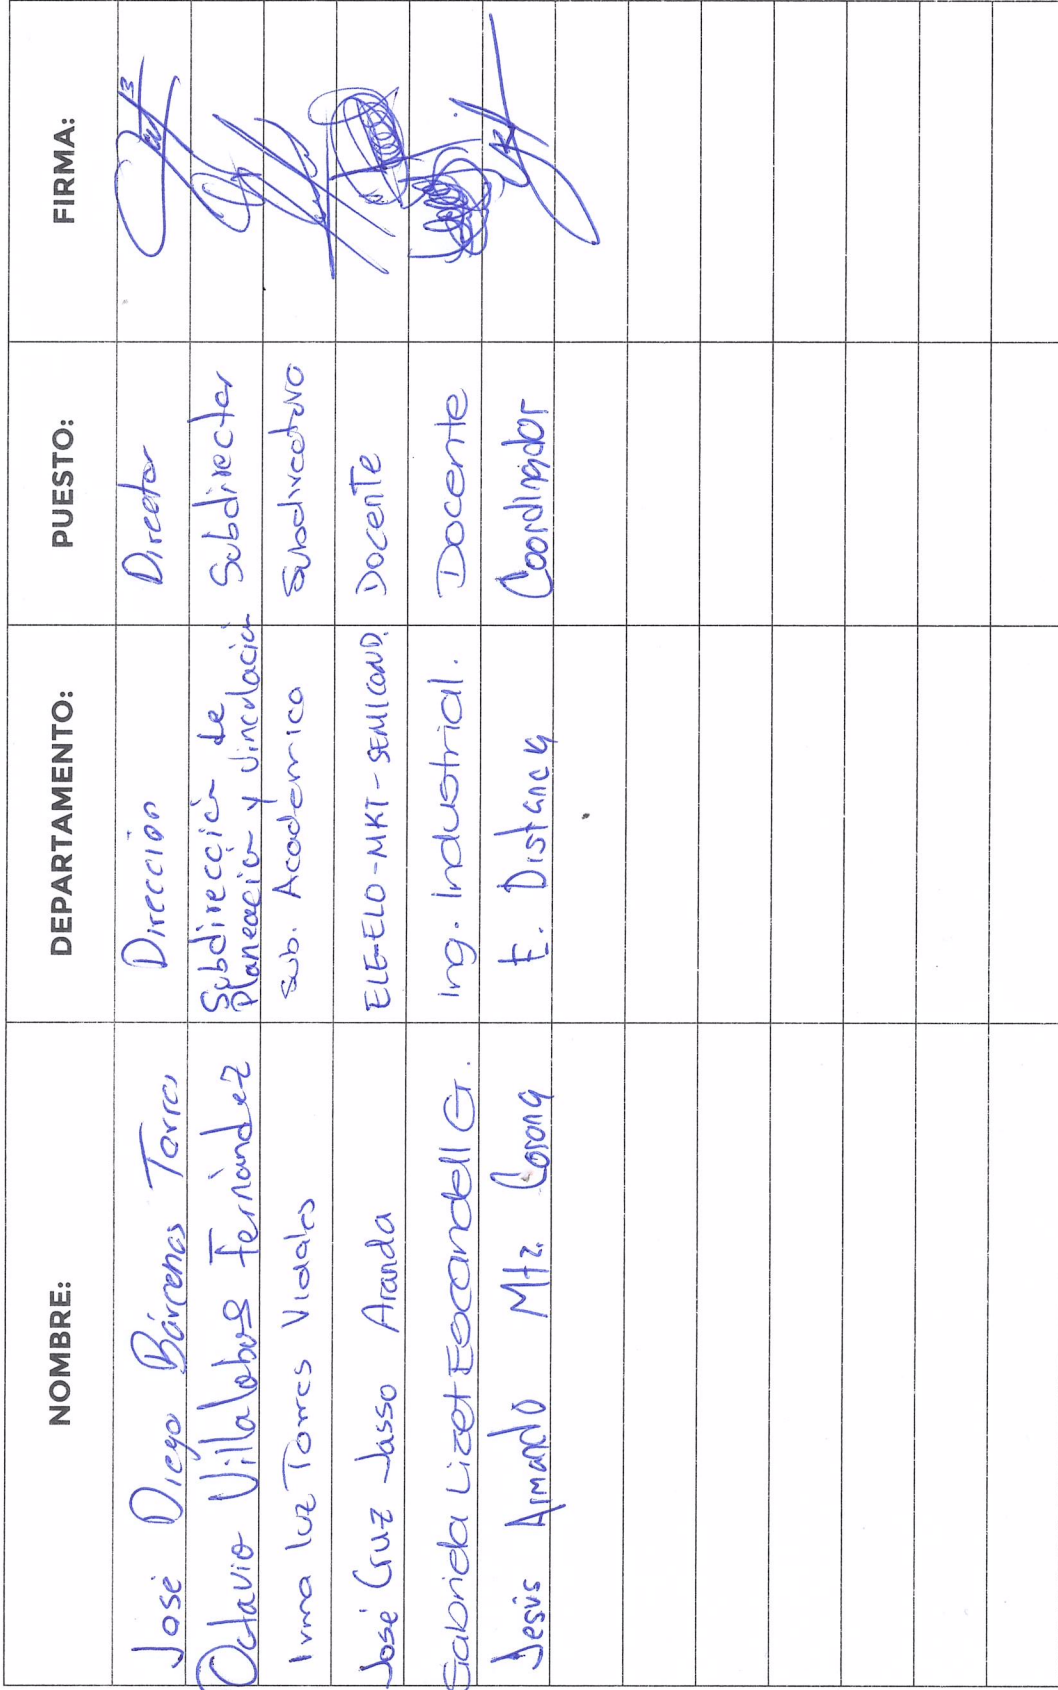 NOMBRE: DEPARTAMENTO: PUESTO: FIRMA:
José Diego Bárcenas Torres Dirección Director
Octavio Villalobos Fernández Subdirección de planeación y vinculación Subdirector
Irma luz Torres Vidales Sub. Académica Subdirectora
José Cruz Jasso Aranda ELE-ELO-MKT-SEMICOND. Docente
Gabriela Lizet Escandell G. Ing. Industrial. Docente
Jesús Armando Mtz. Corona E. Distancia Coordinador